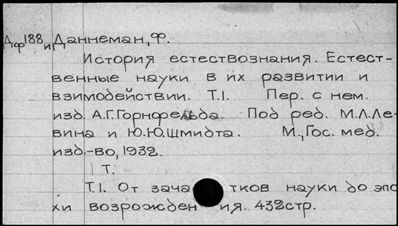 Дф188и Даннеман, Ф.
История естествознания. Естест-
венные науки в их развитии и
взимодействии. Т.I. Пер. с нем.
изд. А.Г.Горнфельда. Под ред. М.Л.Ле-
вина и Ю.Ю.Шмидта. М., Гос. мед.
изд.-во, 1932.
1 т.
Т.I. От зача тков науки до эпо
хи возрожден ия. 432стр.